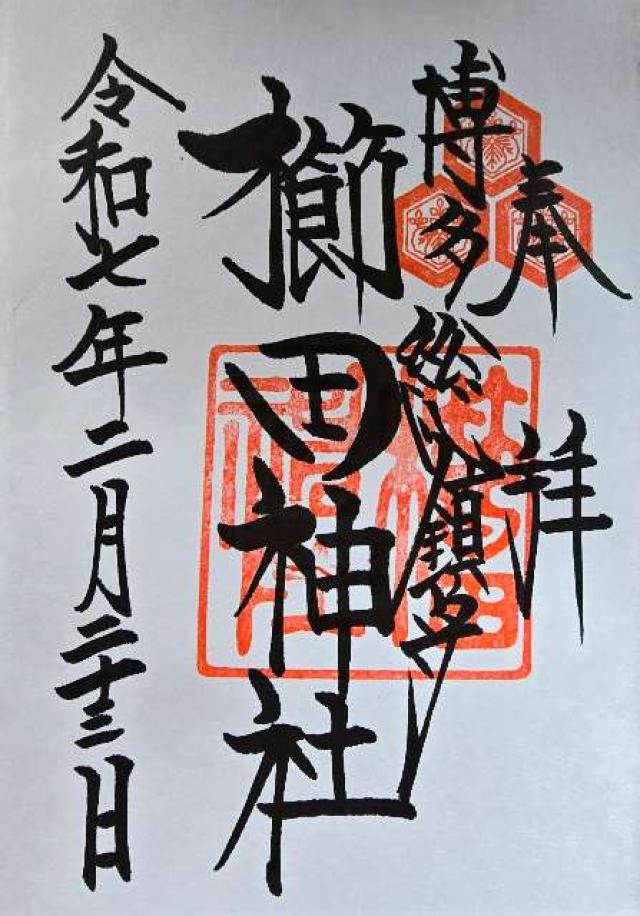 奉拝
博多総鎮守
櫛田神社
令和七年二月二十三日